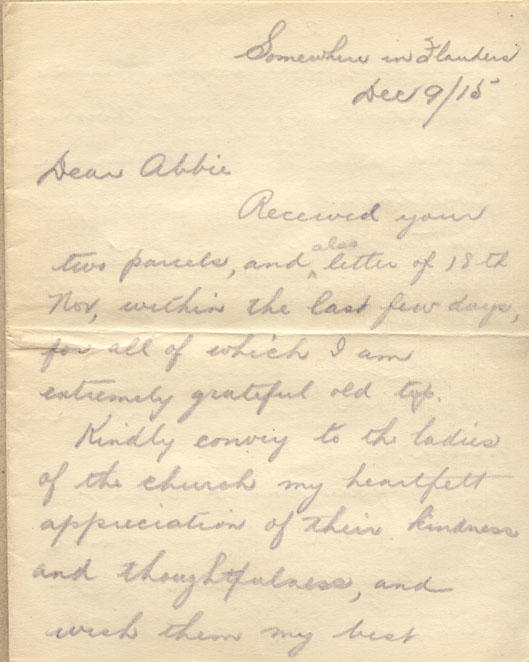 Somewhere in Flanders
Dec 9/15
Dear Abbie
Received your
two parcels, and ^also letter of 18th
Nov, within the last few days,
for all of which I am
extremely grateful old top.
Kindly convey to the ladies
of the church my heartfelt
appreciation of their kindness
and thoughtfulness, and
wish them my best